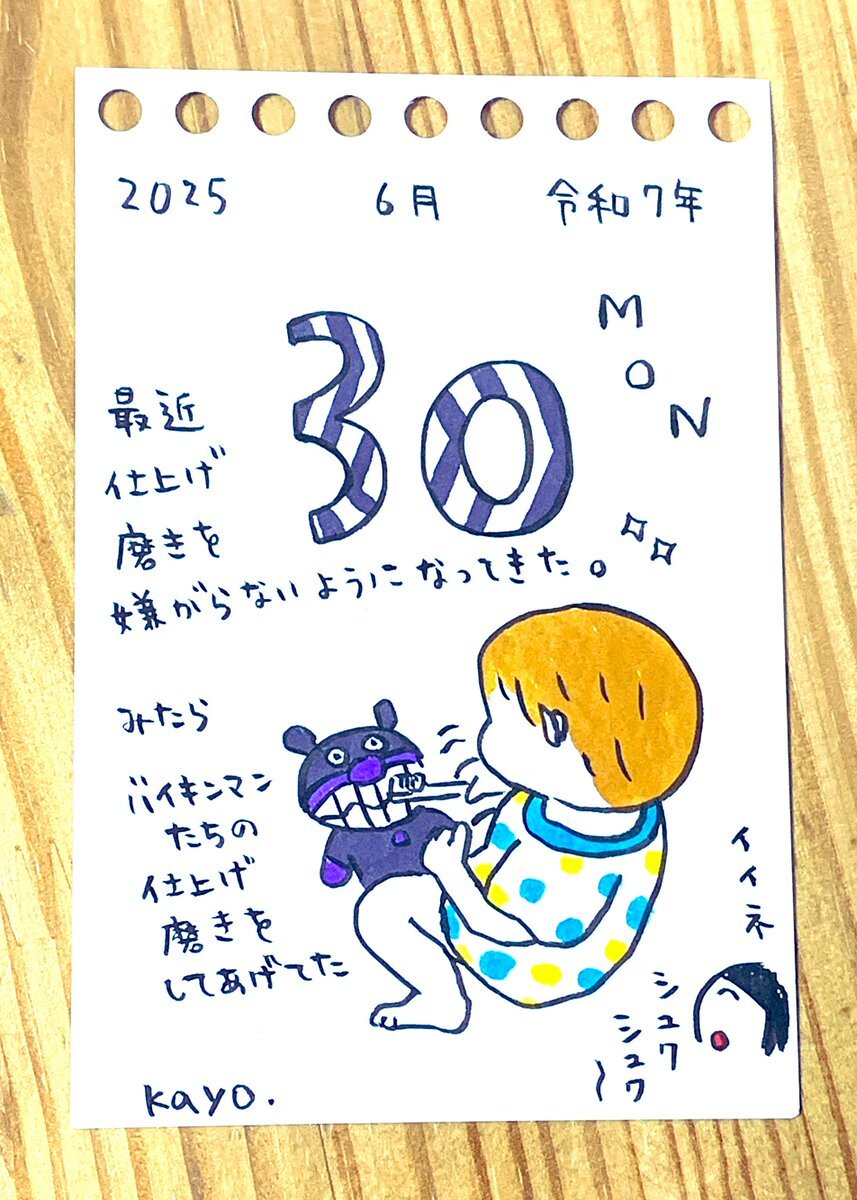 2025 6月 令和7年
30
MON
最近
仕上げ
磨きを
嫌がらないようになってきた。
みたら
バイキンマン
たちの
仕上げ
磨きを
してあげてた
イイネ
シュワ
シュワ〜
kayo.